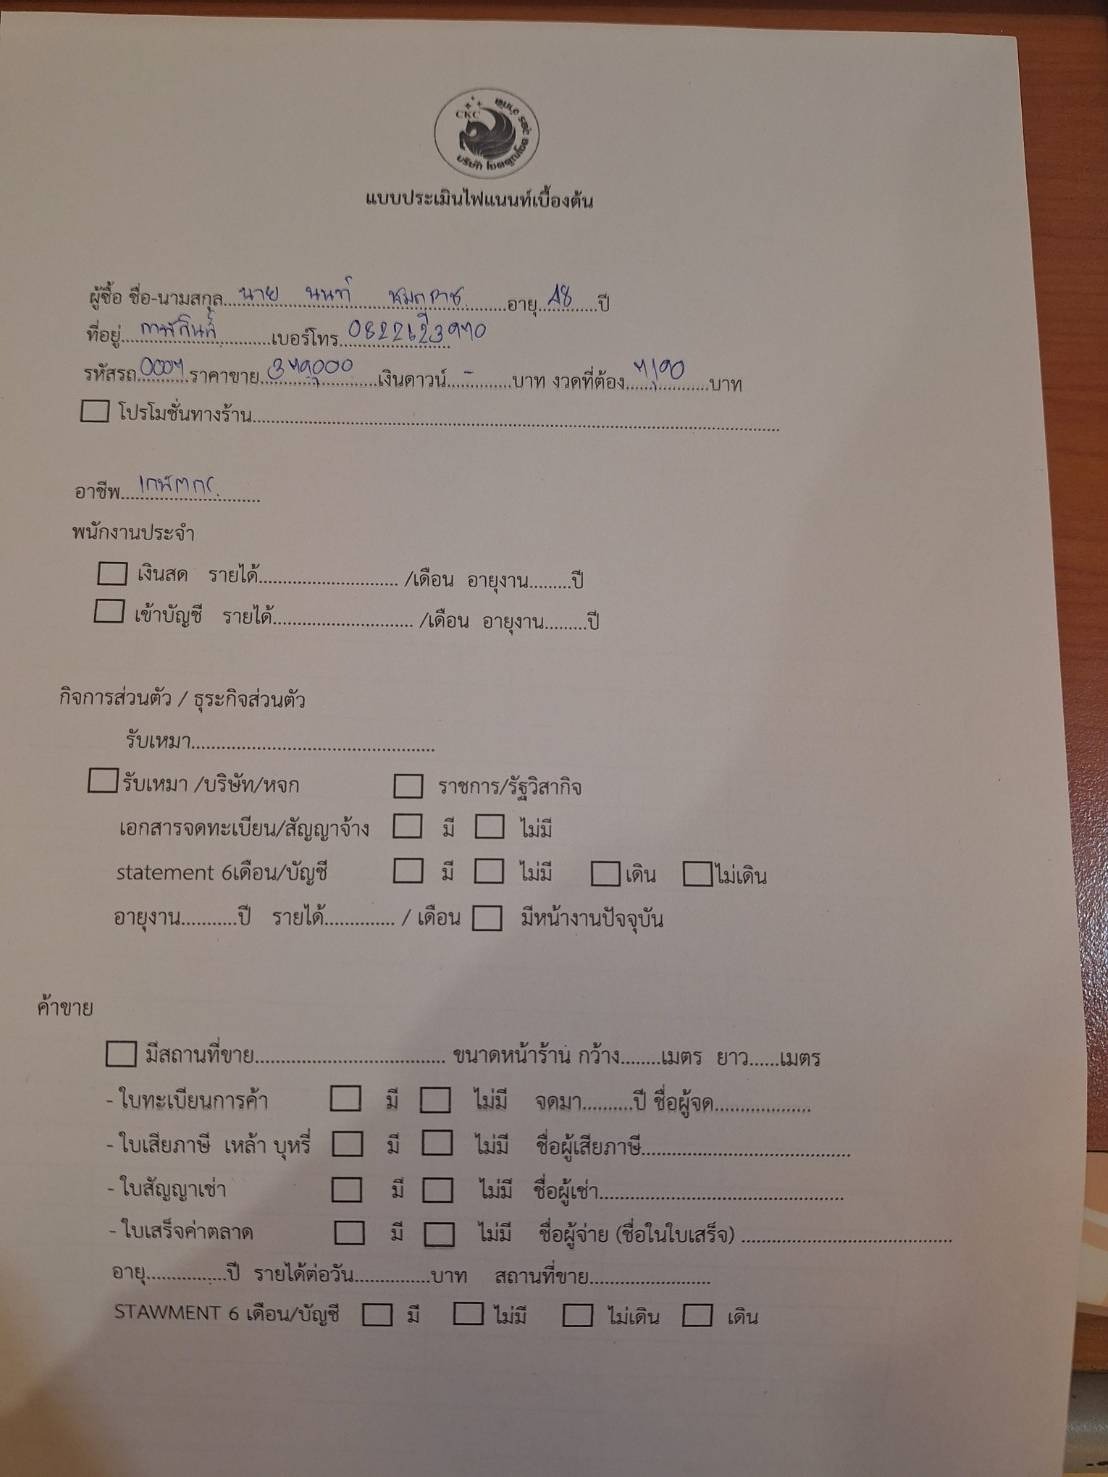 CKC
แบบประเมินไฟแนนท์เบื้องต้น
ผู้ซื้อ ชื่อ-นามสกุล...นาย นนท์.......อายุ..48....ปี
ที่อยู่...กาฬสินธุ์........เบอร์โทร.....
รหัสรถ.0007.ราคาขาย.379,000....เงินดาวน์...-......บาท งวดที่ต้อง..7,190....บาท
โปรโมชั่นทางร้าน..........
อาชีพ...เกษตกร......
พนักงานประจำ
เงินสด รายได้............................ /เดือน อายุงาน.........ปี
เข้าบัญชี รายได้............................ /เดือน อายุงาน.........ปี
กิจการส่วนตัว / ธุระกิจส่วนตัว
รับเหมา.................................................
รับเหมา /บริษัท/หจก ราชการ/รัฐวิสากิจ
เอกสารจดทะเบียน/สัญญาจ้าง มี ไม่มี
statement 6เดือน/บัญชี มี ไม่มี เดิน ไม่เดิน
อายุงาน...........ปี รายได้.............. / เดือน มีหน้างานปัจจุบัน
ค้าขาย
มีสถานที่ขาย...................................... ขนาดหน้าร้าน กว้าง........เมตร ยาว......เมตร
- ใบทะเบียนการค้า มี ไม่มี จดมา..........ปี ชื่อผู้จด...................
- ใบเสียภาษี เหล้า บุหรี่ มี ไม่มี ชื่อผู้เสียภาษี..........................................
- ใบสัญญาเช่า มี ไม่มี ชื่อผู้เช่า.................................................
- ใบเสร็จค่าตลาด มี ไม่มี ชื่อผู้จ่าย (ชื่อในใบเสร็จ) ..........................................
อายุ................ปี รายได้ต่อวัน...............บาท สถานที่ขาย........................
STAWMENT 6 เดือน/บัญชี มี ไม่มี ไม่เดิน เดิน